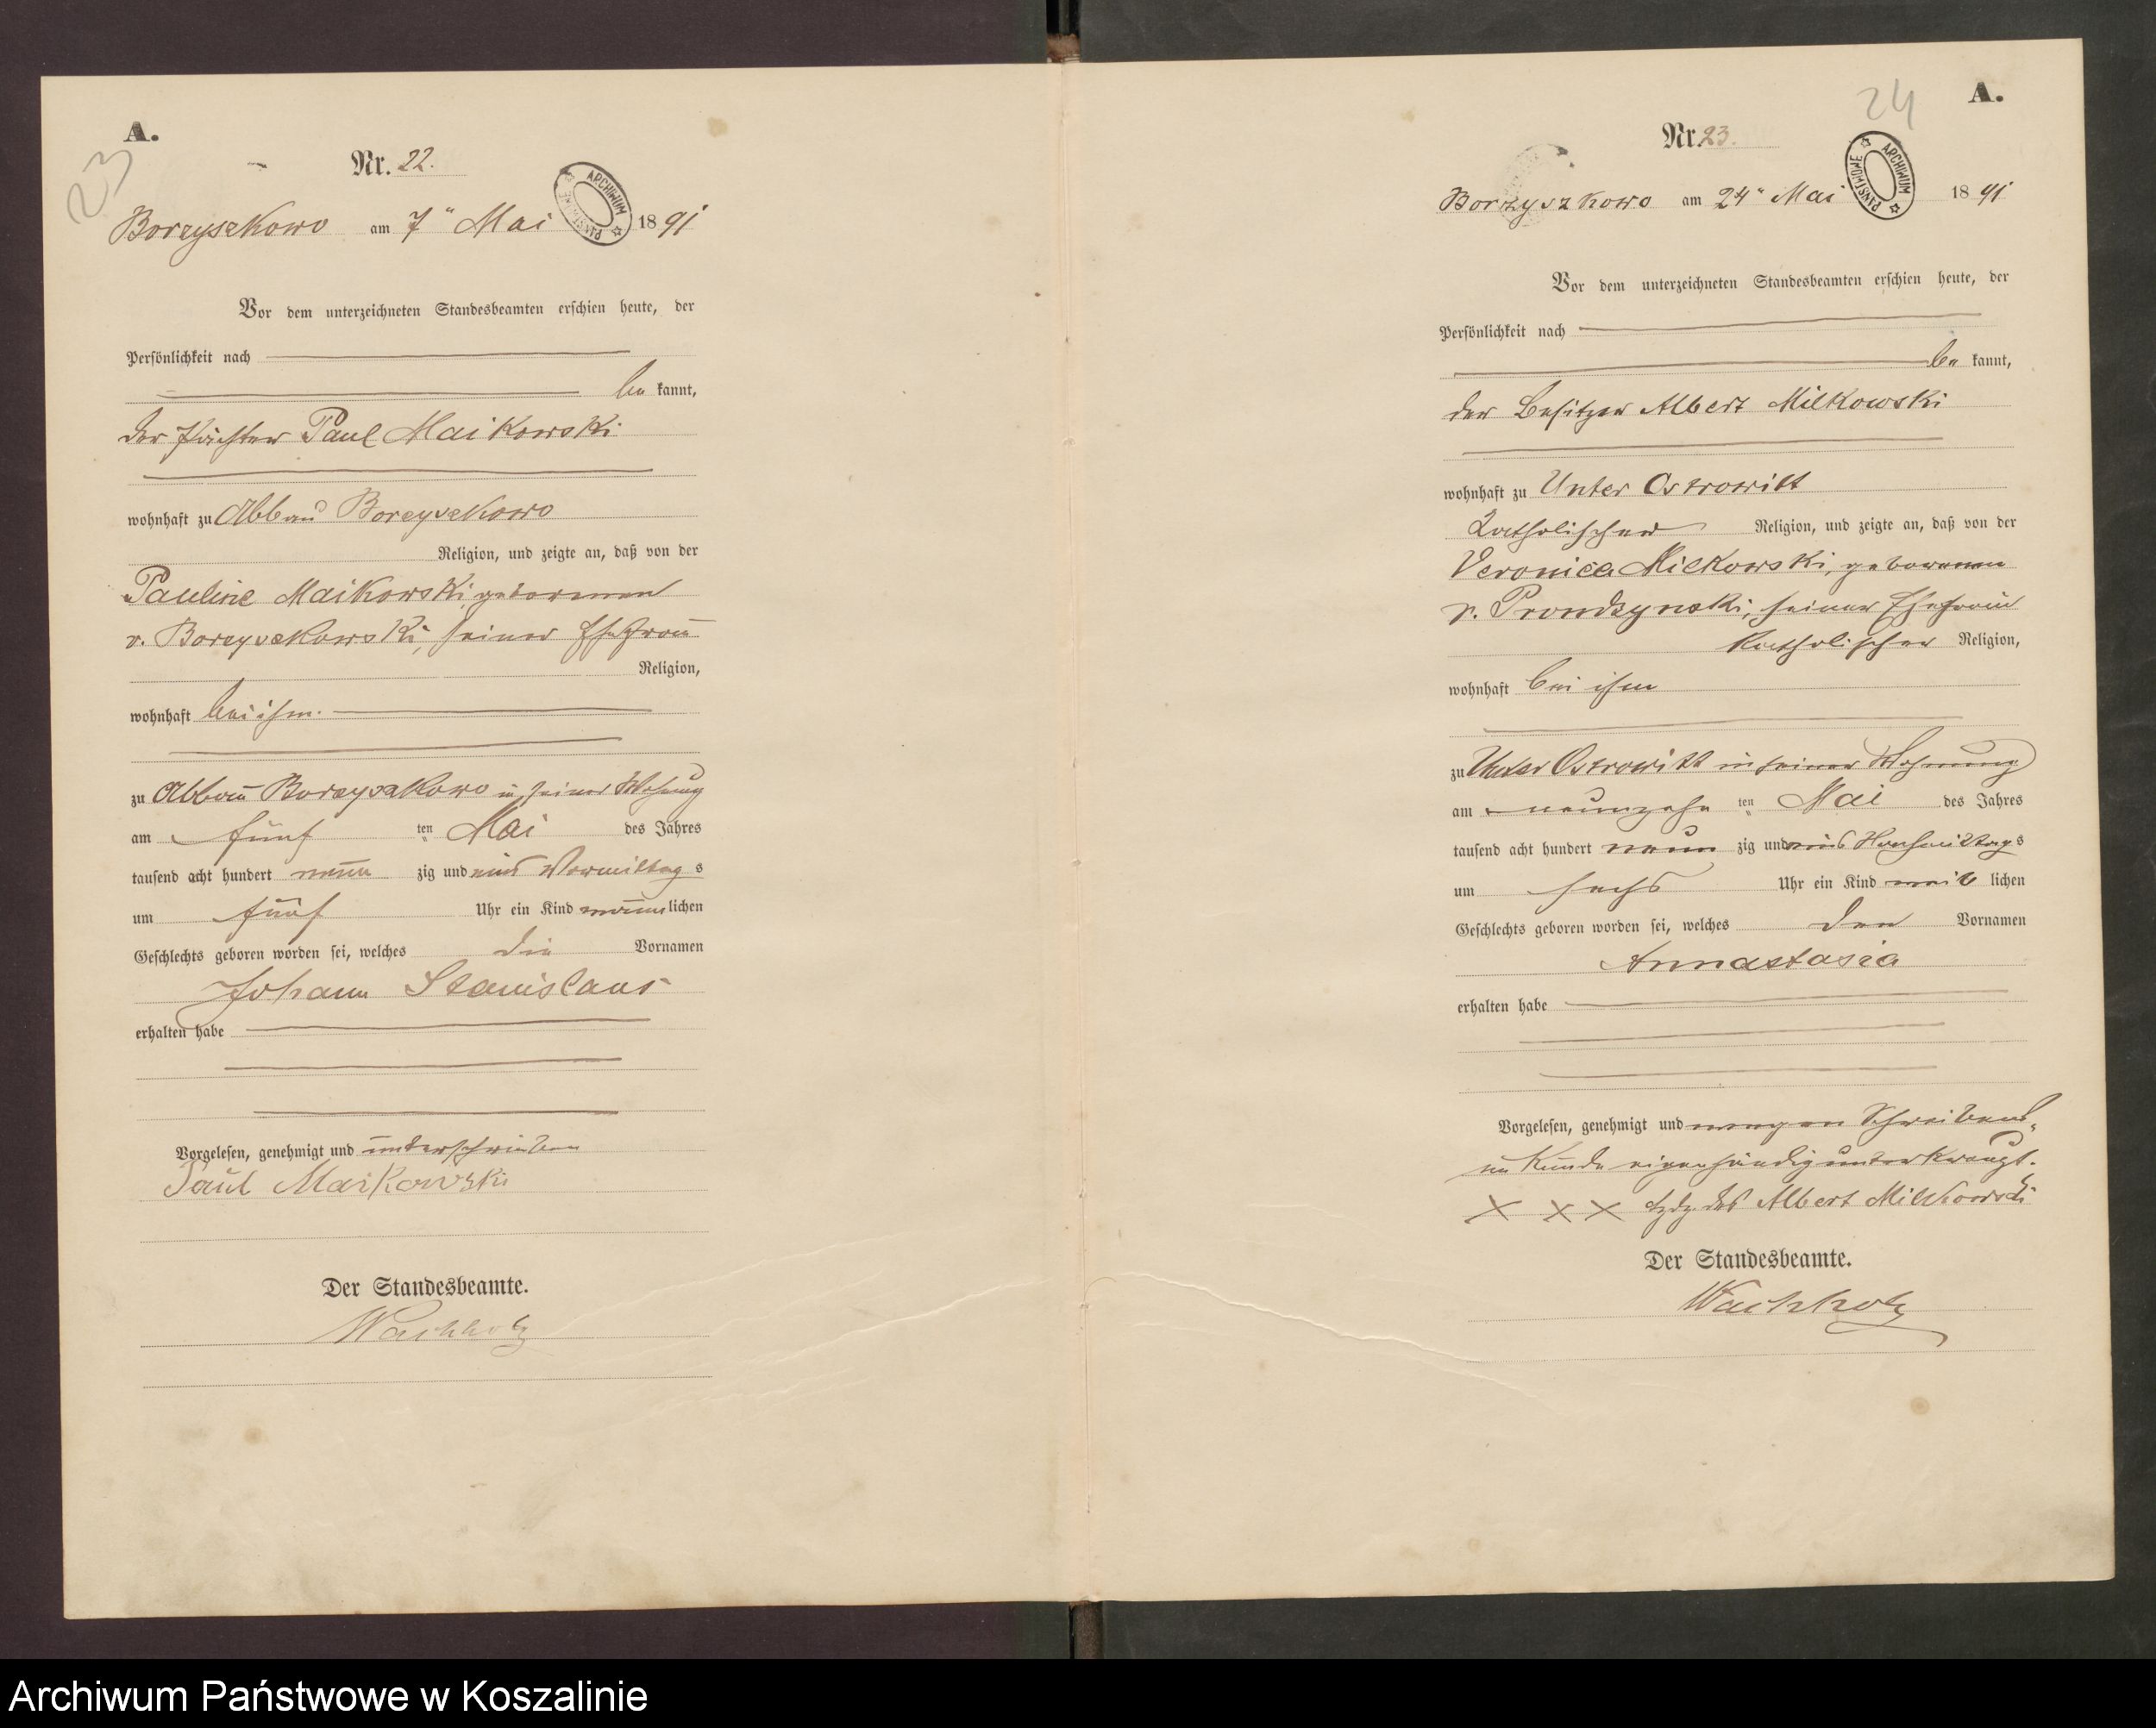 A.
23
Nr. 22.
ARCHIWUM PAŃSTWOWE
Borzyszkowo am 7" Mai 1891
Vor dem unterzeichneten Standesbeamten erschien heute, der
Persönlichkeit nach
be kannt,
der Pächter Paul Maikowski
wohnhaft zu Abbau Borzyszkowo
Religion, und zeigte an, daß von der
Pauline Maikowski, geborenen
v. Borzyszkowski, seiner Ehefrau
Religion,
wohnhaft bei ihm.
zu Abbau Borzyszkowo in seiner Wohnung
am fünf ten Mai des Jahres
tausend acht hundert neun zig und eins Vormittag s
um fünf Uhr ein Kind männ lichen
Geschlechts geboren worden sei, welches die Vornamen
Johann Stanislaus
erhalten habe
Vorgelesen, genehmigt und unterschrieben
Paul Maikowski
Der Standesbeamte.
Wachholz
24
A.
Nr. 23.
ARCHIWUM PAŃSTWOWE
Borzyszkowo am 24" Mai 1891
Vor dem unterzeichneten Standesbeamten erschien heute, der
Persönlichkeit nach
be kannt,
der Besitzer Albert Milkowski
wohnhaft zu Unter Ostrowitt
Katholischer Religion, und zeigte an, daß von der
Veronica Milkowski, geborenen
v. Prondzynski, seiner Ehefrau
Katholischer Religion,
wohnhaft bei ihm
zu Unter Ostrowitt in seiner Wohnung
am neunzehn ten Mai des Jahres
tausend acht hundert neun zig und eins Nachmittag s
um sechs Uhr ein Kind weib lichen
Geschlechts geboren worden sei, welches den Vornamen
Annastasia
erhalten habe
Vorgelesen, genehmigt und wegen Schreibens-
unkunde eigenhändig unterkreuzt.
X X X Hdz. des Albert Milkowski
Der Standesbeamte.
Wachholz
Archiwum Państwowe w Koszalinie